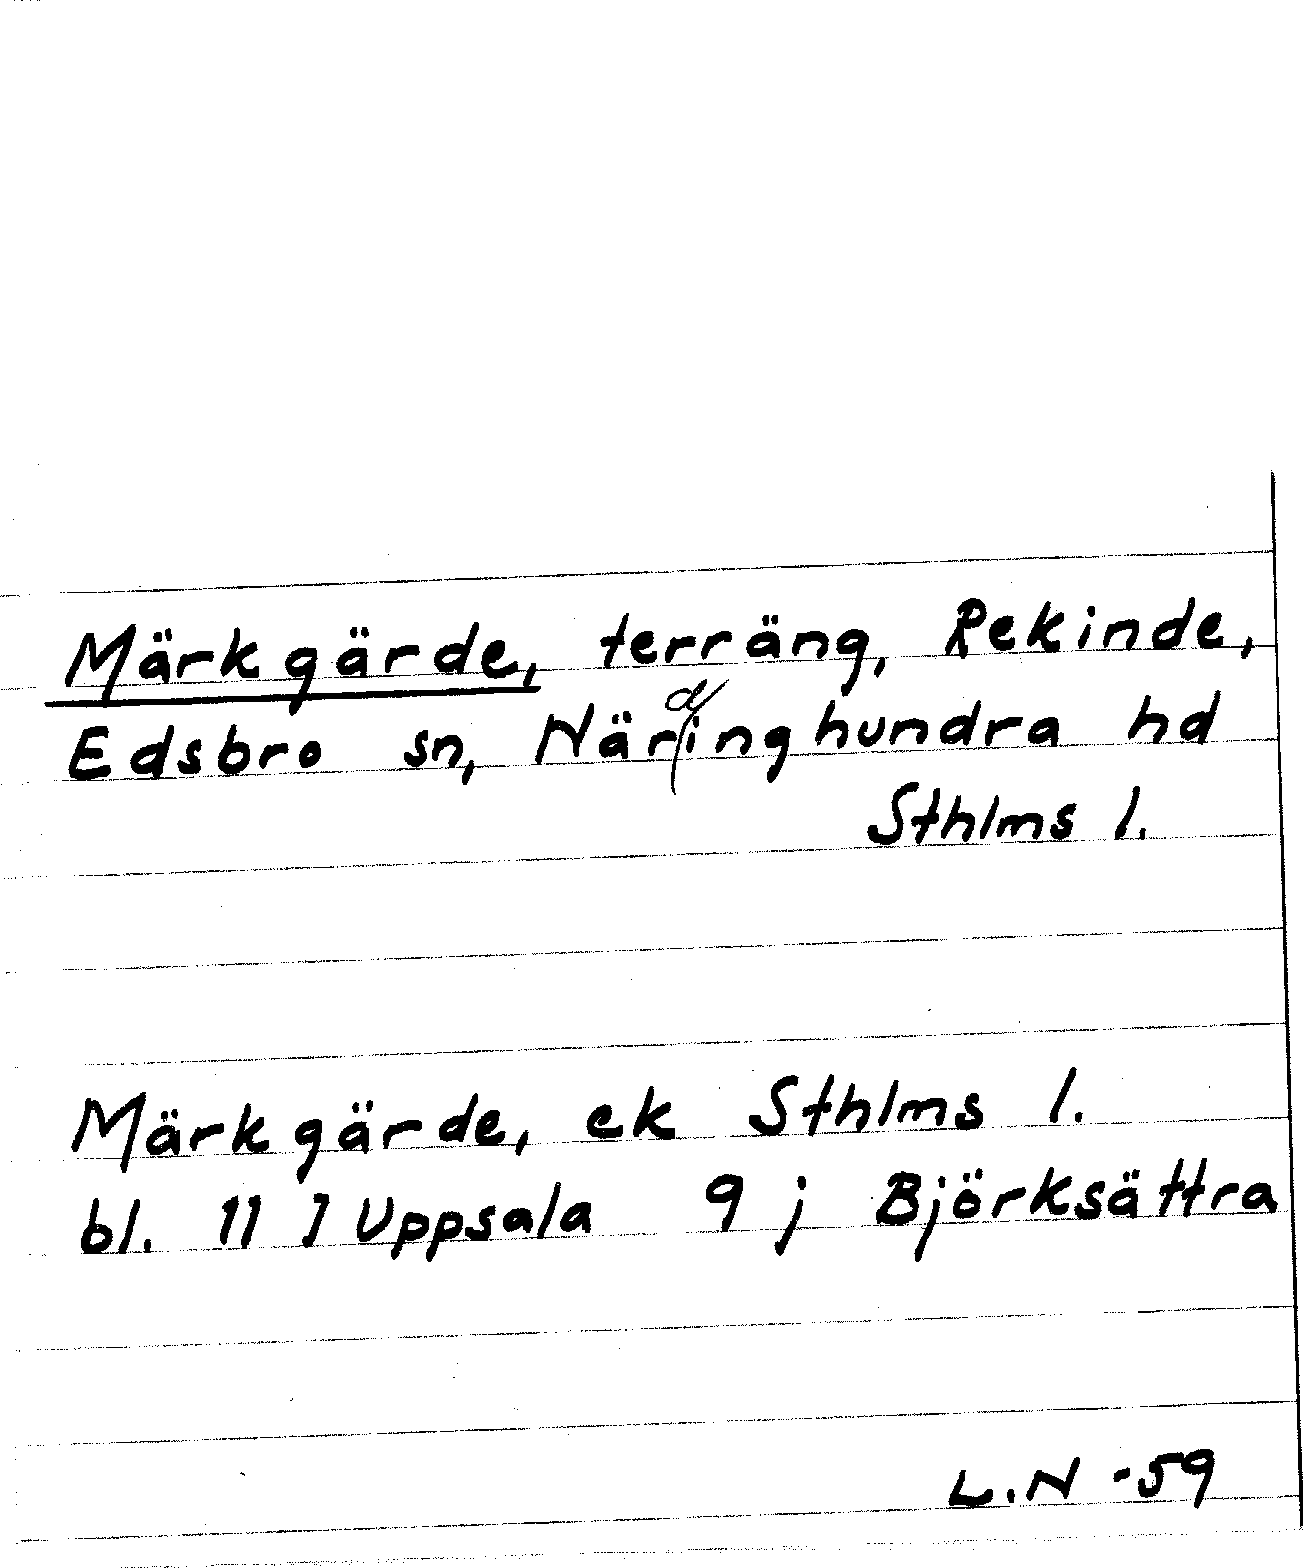 Märkgärde, terräng, Rekinde,
Edsbro sn, Närdinghundra hd
Sthlms l.
Märkgärde, ek Sthlms l.
bl. 11 I Uppsala 9 j Björksättra
L.N -59